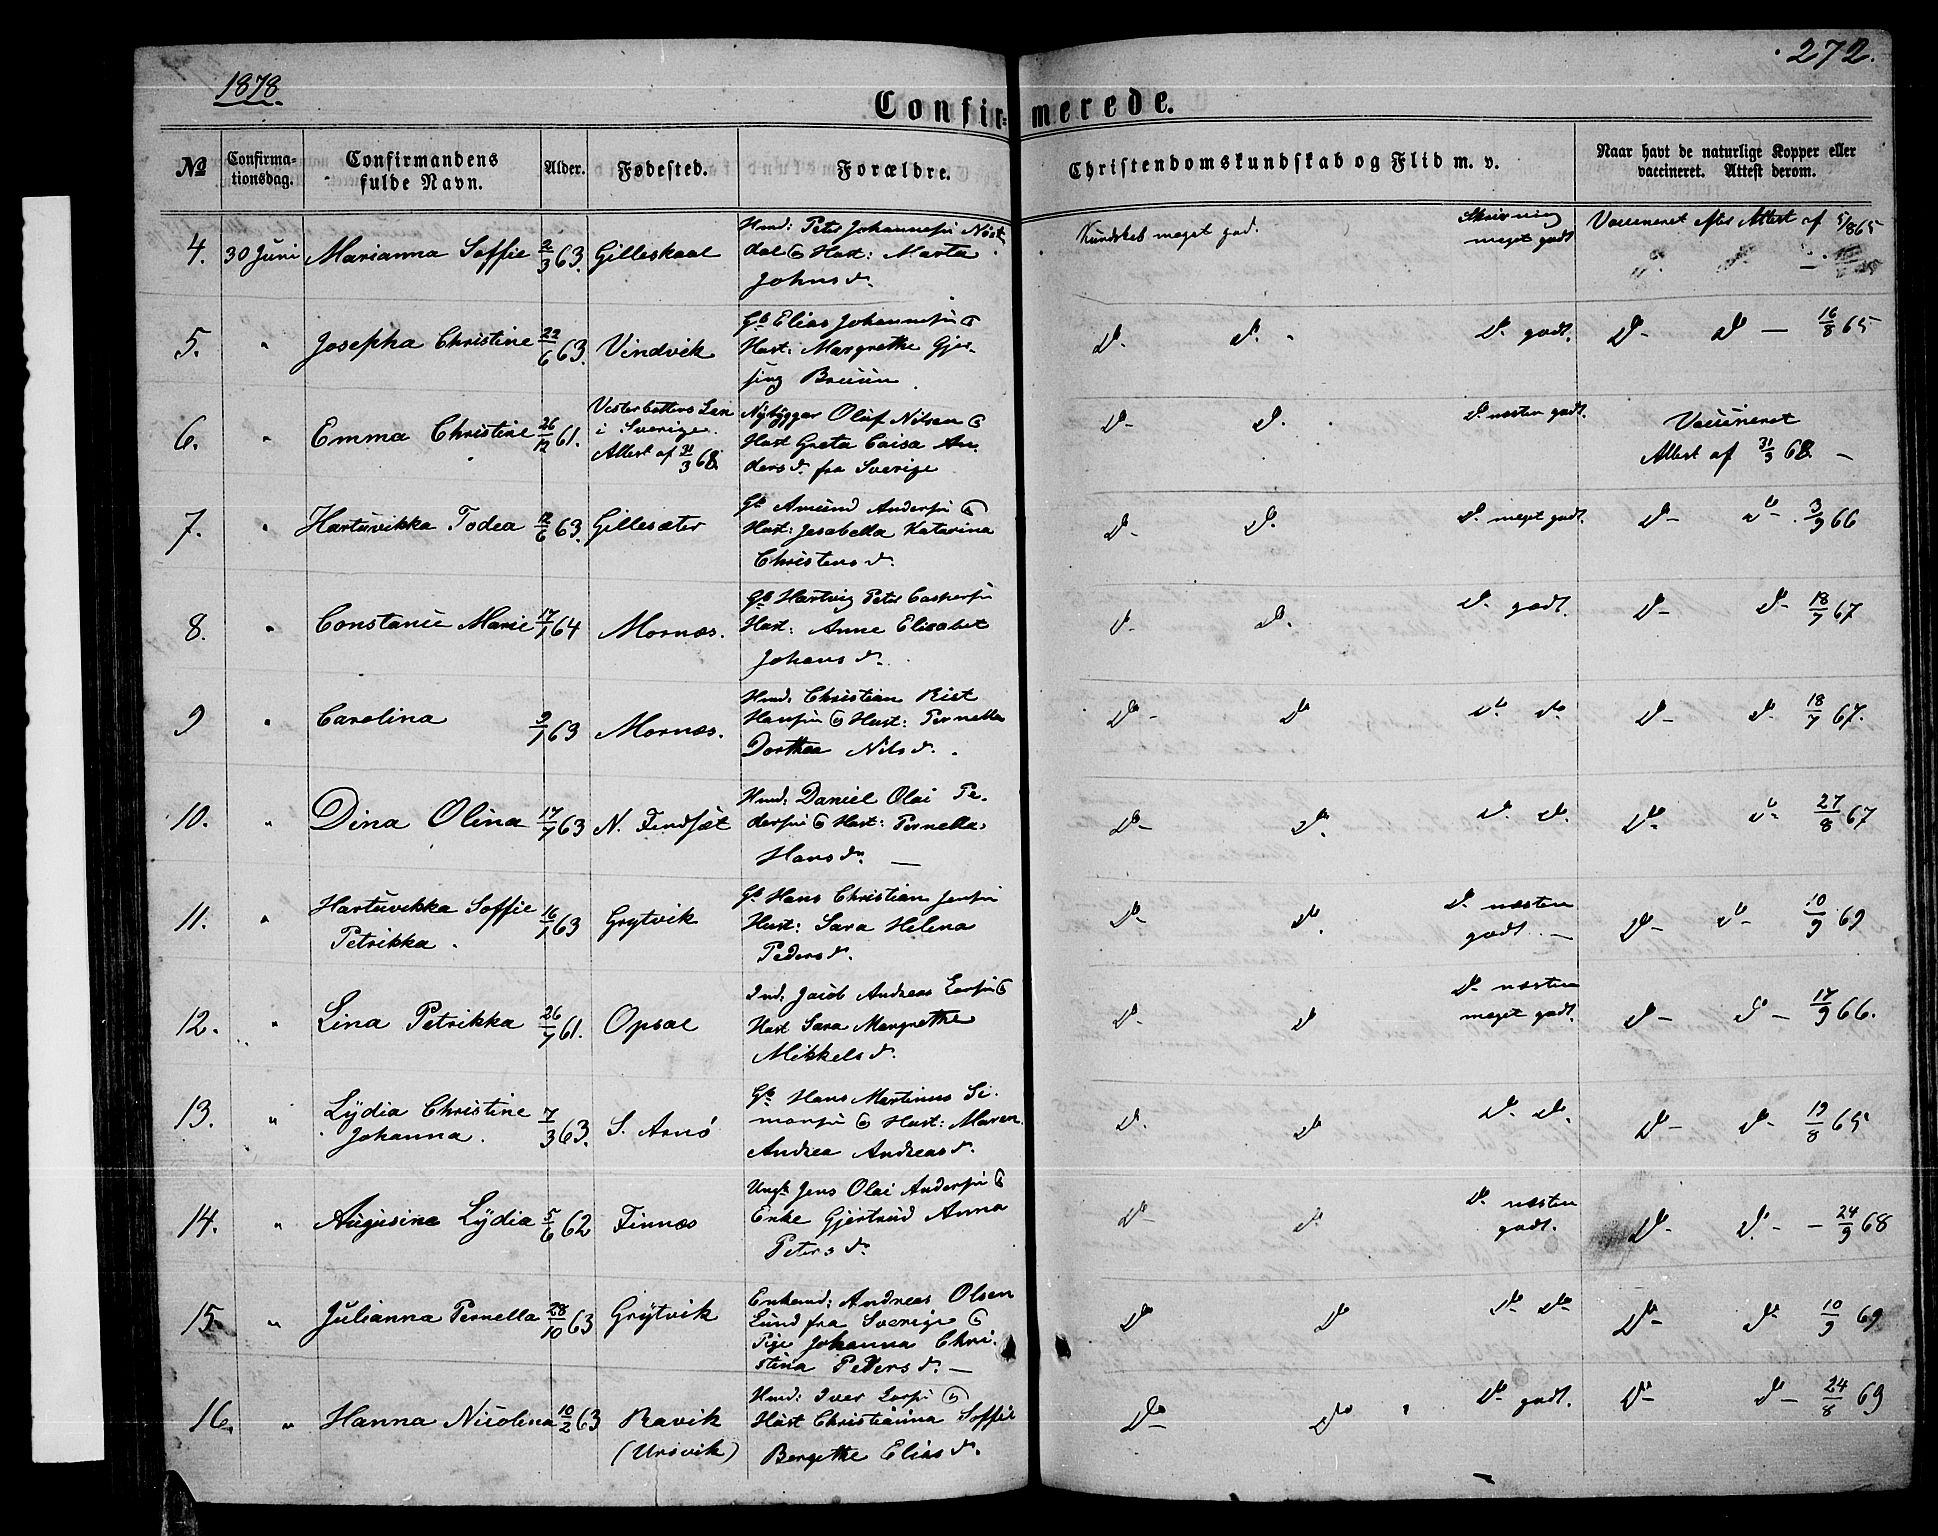 1878.
272.
Confirmerede.
No
Confirmationsdag.
Confirmandens fulde Navn.
Alder.
Fødested.
Forældre.
Christendomskundskab og Flid m. v.
Naar havt de naturlige Kopper eller vaccineret. Attest derom.
4. 30 Juni Marianna Soffie 2/3 63. Gilleskaal
Hmd: Peter Johannesen
Hust: Marta
Johnsd.
Kundskab meget god.
Skrivning
meget godt
Vaccineret efter Attest af 5/8 65
5. " Josepha Christine 22/6 63. Vindvik
Gb. Elias Johannesen &
Hust: Margrethe Gjer-
sing Bruun.
Do. Do. Do. godt. Do - Do - 16/8 65
6. " Emma Christine 26/12 61.
Vesterbottens Len
i Sverige.
Attest af 31/3 68.
Nybygger Oluf Nilsen &
Hust Greta Caisa An-
dersd. fra Sverige
Do. Do. Do. næsten godt.
Vaccineret
Attest af 31/3 68. -
7. " Hartuvikka Todea 12/6 63. Gillesæter
Gb. Amund Andersen &
Hust: Jesabella Katarina
Christensd.
Do. Do. Do. meget godt. Do - Do - 3/9 66
8. " Constance Marie 17/1 64 Mornæs.
Gb. Hartvig Peter Caspersen
Hust: Anne Elisabet
Johansd.
Do. Do. Do. godt. Do - Do - 18/7 67
9 " Carolina 9/1 63 Mornæs.
Hmd: Christian Rist
Hansen & Hust: Pernella
Dorthea Nilsd.
Do - Do Do Do. Do - Do. 18/7 67.
10. " Dina Olina 17/7 63 N. Findsæt
Hmd: Daniel Olai Pe-
dersen & Hust: Pernella
Hansd. —
Do - Do. Do. Do. Do. Do - 27/8 67
11. " Hartuvikka Soffie
Petrikka. 16/1 63 Grytvik
Gb. Hans Christian Jensen
Hust: Sara Helena
Pedersd.
Do - Do. Do. næsten
godt. — Do - Do - 10/9 69
12. " Lina Petrikka 26/7 61. Opsal
Ind: Jacob Andreas Larsen &
Hust Sara Margrethe
Mikkelsd.
Do - Do Do. næsten
meget godt. Do - Do - 17/9 66.
13. " Lydia Christine
Johanna. 7/3 63. S. Arnö
Gb. Hans Martinus Si-
monsen & Hust: Maren
Andrea Andreasd.
Do. Do Do. Do. Do - Do - 19/8 65
14. " Augusine Lydia 5/6 62 Finnæs
Ungk. Jens Olai Andersen &
Enke Gjertrud Anna
Petersd.
Do - Do - Do. næsten
godt. Do - Do. - - 24/9 68
15 " Julianna Pernella 28/10 63 Grytvik
Enkemd: Andreas Olsen
Lund fra Sverige &
Pige Johanna Chri-
stina Pedersd. —
Do Do Do Do Do - Do - 10/9 69
16. " Hanna Nicolina 10/2 63 Ravik
(Ursvik)
Hmd: Iver Larsen &
Hust Christianna Soffie
Bergethe Eliasd.
Do Do " Do godt. Do - Do - 24/8 69